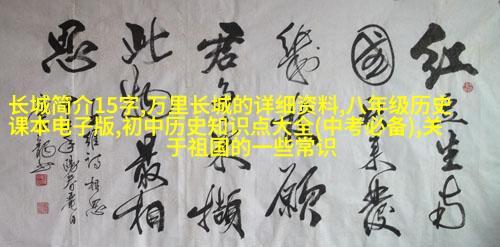 长城简介15字,万里长城的详细资料,八年级历史
课本电子版,初中历史知识点大全(中考必备),关
于祖国的一些常识
红豆生南
國春来發
幾枝願
君多采撷
此物最相
思